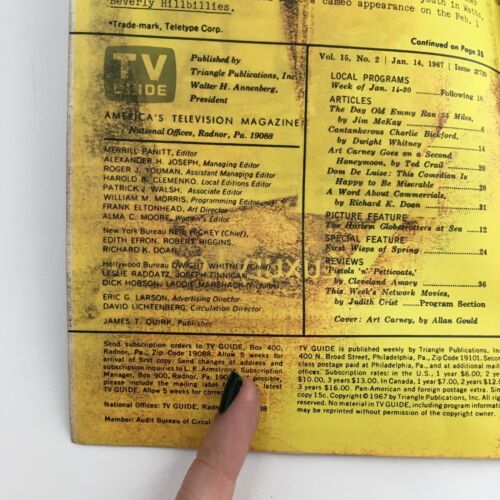 Beverly Hillbillies.
a cameo appearance on the Feb. 1
youth in Watts,
*Trade-mark, Teletype Corp.
Continued on Page 35
TV
GUIDE
Published by
Triangle Publications, Inc.
Walter H. Annenberg,
President
AMERICA'S TELEVISION MAGAZINE
National Offices, Radnor, Pa. 19088
MERRILL PANITT, Editor
ALEXANDER H. JOSEPH, Managing Editor
ROGER J. YOUMAN, Assistant Managing Editor
HAROLD B. CLEMENKO, Local Editions Editor
PATRICK J. WALSH, Associate Editor
WILLIAM M. MORRIS, Programming Editor
FRANK ELTONHEAD, Art Director
ALMA C. MOORE, Women's Editor
New York Bureau NEIL HICKEY (Chief),
EDITH EFRON, ROBERT HIGGINS,
RICHARD K. DOAN
Hollywood Bureau DWIGHT WHITNEY (Chief),
LESLIE RADDATZ, JOSEPH FINNIGAN,
DICK HOBSON, LADDIE MARSHACK (Pictures)
ERIC G. LARSON, Advertising Director
DAVID LICHTENBERG, Circulation Director
JAMES T. QUIRK, Publisher
Vol. 15, No. 2 | Jan. 14, 1967 | Issue
LOCAL PROGRAMS
Week of Jan. 14-20 Following 18
ARTICLES
The Day Old Emmy Ran 55 Miles,
by Jim McKay 6
Cantankerous Charlie Bickford,
by Dwight Whitney 14
Art Carney Goes on a Second
Honeymoon, by Ted Crail 20
Dom De Luise: This Comedian Is
Happy to Be Miserable 28
A Word About Commercials,
by Richard K. Doan 31
PICTURE FEATURE
The Harlem Globetrotters at Sea 12
SPECIAL FEATURE
First Wisps of Spring 24
REVIEWS
'Pistols 'n' Petticoats,'
by Cleveland Amory 36
This Week's Network Movies,
by Judith Crist Program Section
Cover: Art Carney, by Allan Gould
Send subscription orders to TV GUIDE, Box 400,
Radnor, Pa., Zip Code 19088. Allow 5 weeks for
arrival of first copy. Send changes of address and
subscription inquiries to L. K. Armstrong, Subscription
Manager, Box 900, Radnor, Pa. possible,
please include the mailing label latest
TV GUIDE. Allow 5 weeks for
National Offices: TV GUIDE,
Member: Audit Bureau of
TV GUIDE is published weekly by Triangle Publications, Inc.
400 N. Broad Street, Philadelphia, Pa., Zip Code 19101. Second
class postage paid at Philadelphia, Pa., and at additional mailing
offices. Subscription rates: in the U.S., 1 year $6.00, 2 years
$10.00, 3 years $13.00. In Canada, 1 year $7.00, 2 years
3 years $16.00. Pan-American and foreign postage extra. Single
copy 15c. Copyright © 1967 by Triangle Publications, Inc. All rights
reserved. No material in TV GUIDE, including program information,
may be reprinted without permission of the copyright owner.